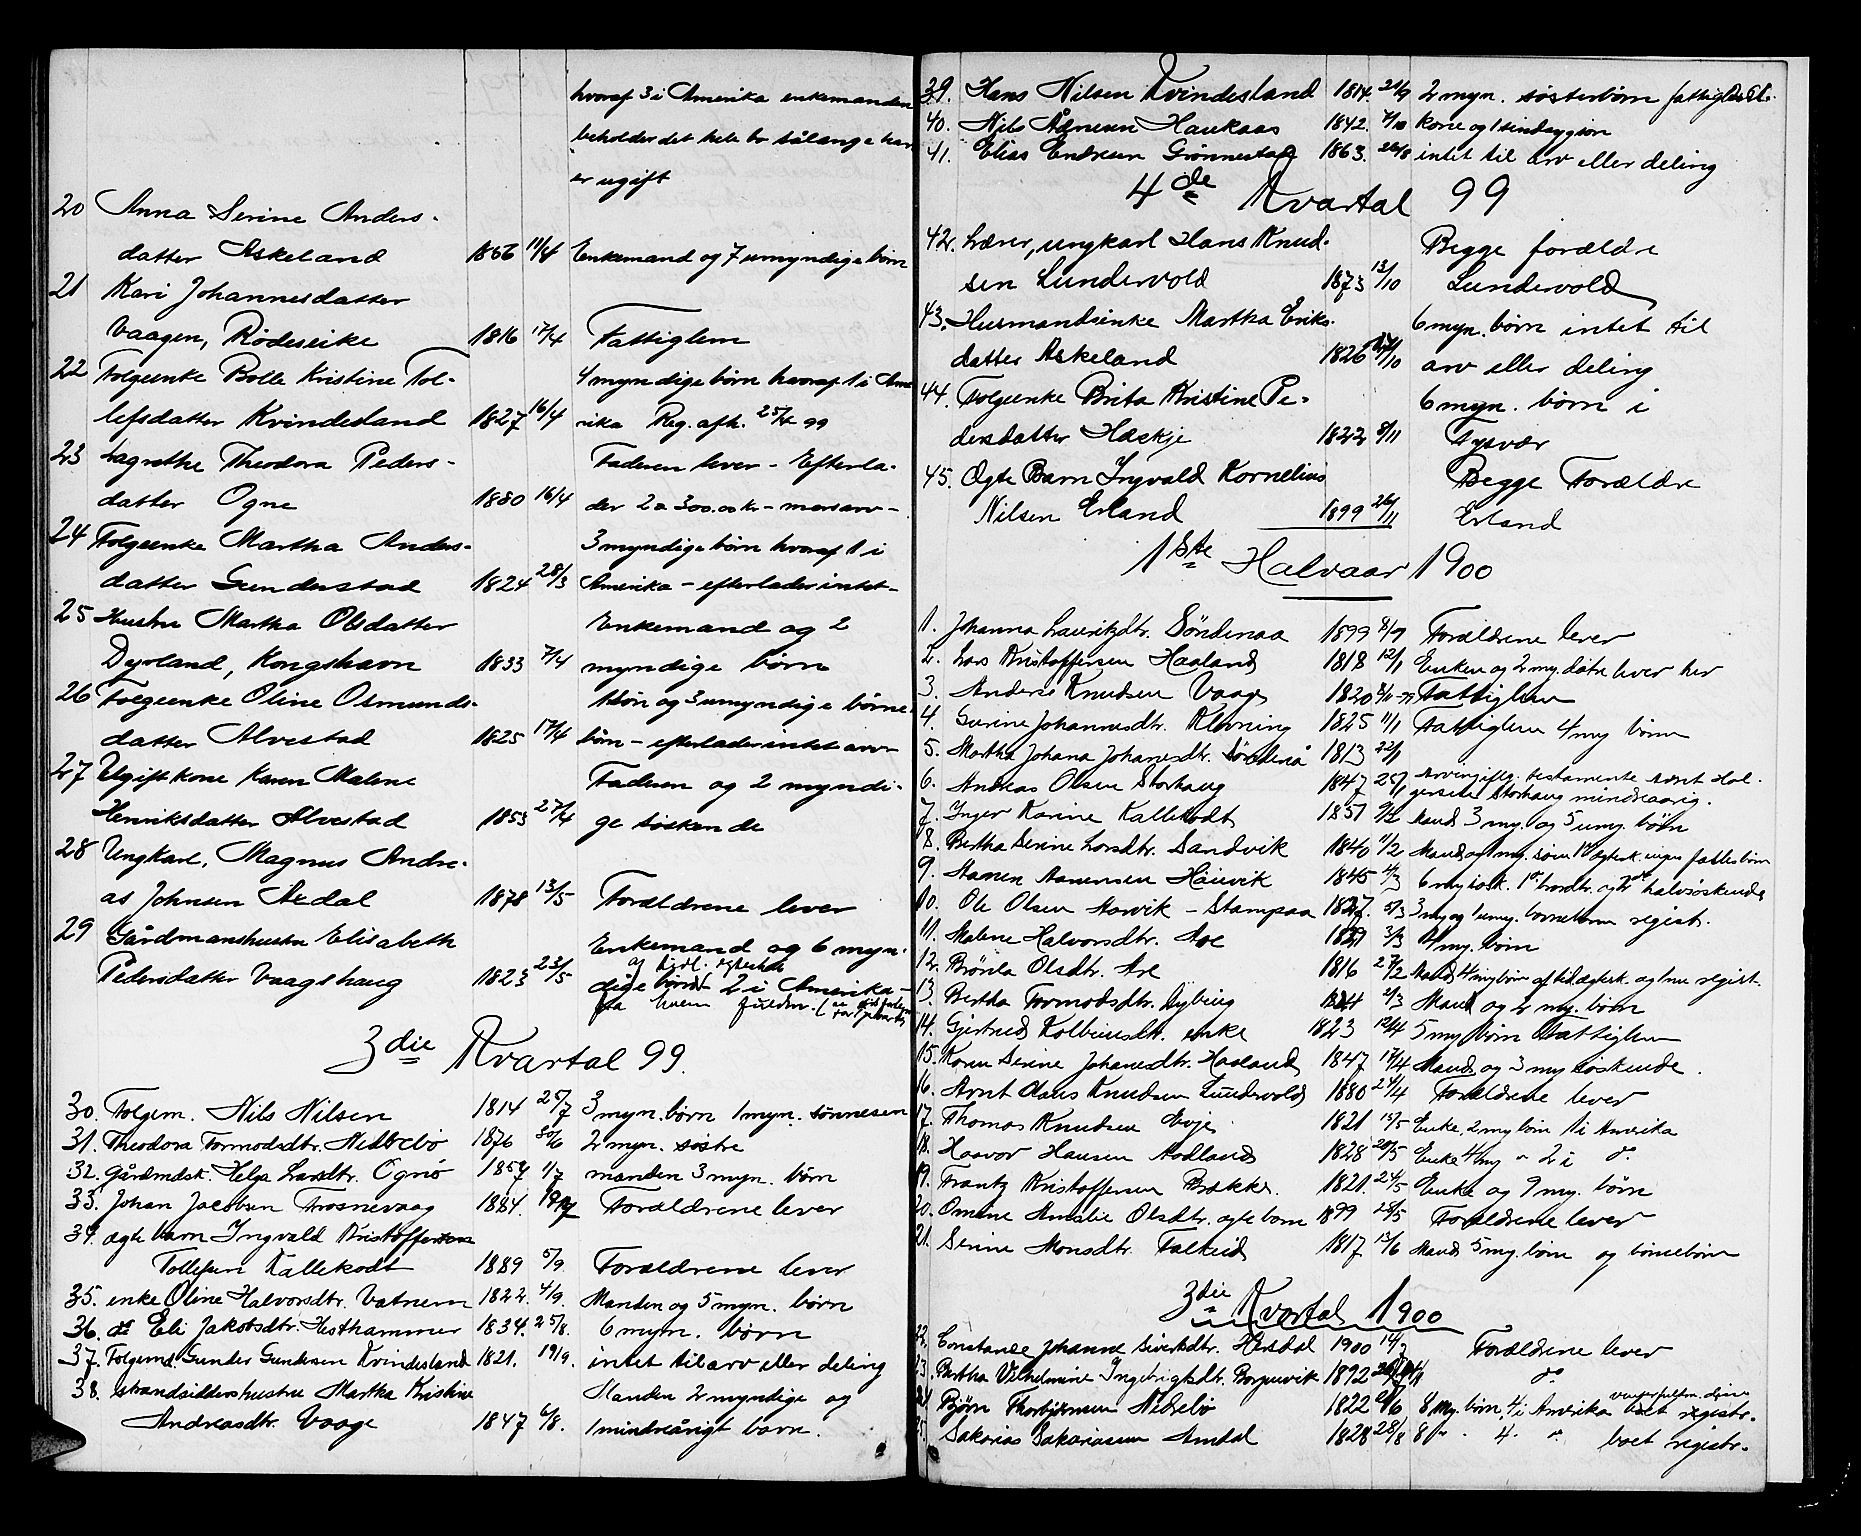 hvoraf 3 i Amerika enkemanden
beholder det hele bo sålænge han
er ugift
20 Anna Serine Anders-
datter Askeland 1856 11/4 Enkemand og 7 umyndige børn
21 Kari Johannesdatter
Vaagen, Rødseike 1816 17/4 Fattiglem
22 Folgeenke Bolle Kristine Tol- 4 myndige børn hvoraf 1 i Ame
lefsdatter Kvindesland 1827 16/4 rika Reg. afh. 25/4 99
23 Lagrethe Theodora Peders- Faderen lever - Efterla-
datter Ogne 1880 16/4 der 2 a 300.00 kr - morsarv -
24 Folgeenke Martha Anders- 3 myndige børn hvoraf 1 i
datter Gunderstad 1824 28/3 Amerika - efterlader intet -
25 Hustru Martha Olsdatter Enkemand og 2
Dyrland, Kongshavn 1833 7/4 myndige børn
26 Folgeenke Oline Osmunds- 1 søn og 3 umyndige børne-
datter Alvestad 1825 17/4 børn - efterlader intet arv
27 Ugift kone Karen Malene Faderen og 2 myndi-
Henriksdatter Alvestad 1853 27/4 ge søskende
28 Ungkarl, Magnus Andre-
as Johnsen Aadal 1878 13/5 Forældrene lever
29 Gårdmanshustru Elisabeth Enkemand og 6 myn-
Pedersdatter Vaagshaug 1823 23/5 dige børn 2 i Amerika -
3die Kvartal 99.
30. Folgem. Nils Nilsen 1814 25/7 3 myn. børn 1 myn. sønnesøn
31. Theodora Tormodsdtr. Nedrebø 1876 30/6 2 myn. søstre
32. Gårdmdsk. Helga Larsdtr. Ognø 1857 1/7 manden 3 myn. børn
33. Johan Jacobsen Frosnevaag 1884. 19/7 Forældrene lever
34. ægte barn Ingvald Kristoffersen
Tollefsen Kallekodt 1889 5/9 Forældrene lever
35. enke Oline Halvorsdtr. Vatnem 1822. 4/9. Manden og 5 myn. børn
36. do Eli Jakobsdtr. Hesthammer 1834. 25/8. 6 myn. børn
37. Folgemd. Gunder Gundersen Kvindesland 1821. 19/9. intet til arv eller deling
38. strandsidderhustru Martha Kristine Manden 2 myndige og
Andreasdtr. Vaage 1847 6/8. 1 mindreårigt barn.
39. Hans Nilsen Kvindesland 1814. 21/9 2 myn. søsterbørn
40. Nils Aanesen Haukaas 1842. 4/10 kone og 1 sindssyg søn
41. Elias Endresen Grønnestad 1863. 26/8 intet til arv eller deling
4de Kvartal 99
42. Lærer, ungkarl Hans Knud- Begge forældre
sen Lundervold 1873 13/10 Lundervold
43. Husmandsenke Martha Eriks- 6 myn. børn intet til
datter Askeland 1826 27/10 arv eller deling
44. Folgeenke Brita Kristine Pe- 6 myn. børn i
dersdatter Hæskje 1822 8/11 Tysvær
45. Ægte Barn Ingvald Kornelius Begge Forældre
Nilsen Erland 1899 26/11 Erland
1ste Halvaar 1900
1. Johanna Lauritzdtr. Søndenaa 1899 8/9 Forældrene lever
2. Lars Kristoffersen Haaland 1818 12/1 Enken og 2 my. døtre lever her
3. Anders Knudsen Vaage 1820 Fattiglem
4. Gurine Johannesdtr. Klovning 1825 11/1 Fattiglem 4 my børn
5. Martha Johana Johanesdtr. Søndenå 1813 22/1
6. Andreas Olsen Storhaug 1847 25/1 arving iflg. testamente Arnt Hol-
gersen Storhaug mindreaarig.
7. Inger Karine Kallekodt 1857 9/2 Mand 3 my. og 5 umy. børn
8. Bertha Serine Larsdtr. Sandvik 1840 11/2 Mand og 1 my. søn 1ste ægtesk. ingen fælles børn
9. Aanen Aanensen Høievik 1845 4/3 6 my søsk. 1 brordtr. og 2 halvsøskende
10. Ole Olsen Aarvik - Stampaa 1827. 5/3 3 my og 1 umy. børnebørn registr.
11. Malene Halvorsdtr. Aae 1829 3/3 4 my. børn
12. Brønla Olsdtr. Are 1816 27/2 Mand 4 my børn af tid. ægtesk. og 1 nu regist.
13. Bertha Tormodsdtr. Dybing 1824 2/3 Mand og 2 my. børn
14. Gjertrud Kolbeinsdtr. enke 1823 12/4 5 my børn Fattiglem
15. Karen Serine Johanesdtr. Haaland 1847 17/4 Mand og 3 my søskende.
16. Arnt Claus Knudsen Lundervold 1880 24/4 Forældrene lever
17. Thomas Knudsen Eoje 1821 15/5 Enke, 2 my børn 1 i Amerika
18. Haavor Hansen Aadland 1828 20/5 Enke 4 my " 2 i do
19. Frantz Kristoffersen Brække. 1821. 24/5 Enke og 9 my. børn
20. Omine Amalie Olsdtr. ægte barn 1899 28/5 Forældrene lever
21. Serine Monsdtr. Falkeid 1817 13/6 Mand 5 my. børn og børnebørn
3die Kvartal 1900
22. Constanse Johanne Sivertsdtr. Hersdal 1900 14/7 Forældrene lever
23. Bertha Vilhelmine Ingebrigtsdtr. Borgenvik 1892 do
24. Bjørn Thorbjørnsen Nedrebø 1822 8 my børn, 4 i Amerika boet registr.
25. Sakarias Sakariassen Amdal 1828 28/8 8 " . 4. " boet registr.